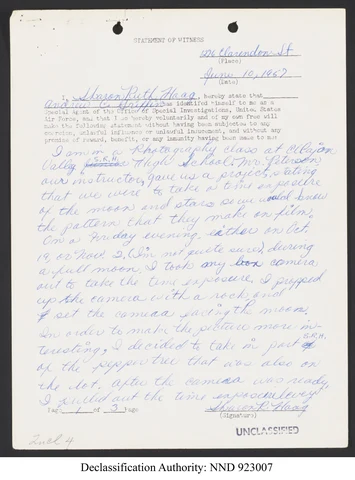 STATEMENT OF WITNESS
Clarendon St
(Place)
June 10, 1967
(Date)
I, Sharon Ruth Haag, hereby state that
Andrew C. has identified himself to me as a
Special Agent of the Office of Special Investigations, United States
Air Force, and that I do hereby voluntarily and of my own free will
make the following statement without having been subjected to any
coercion, unlawful influence or unlawful inducement, and without any
promise of reward, benefit, or any immunity having been made to me:
I am in a photography class at
Valley S.R.H. High School. Mr. Peterson
our instructor, gave us a project, stating
that we were to take a time exposure
of the moon and stars so we would know
the pattern that they make on film.
On a Friday evening, either on Oct.
19 or Nov. 2, (I'm not quite sure), during
a full moon, I took my camera
out to take the time exposure. I propped
up the camera with a rock and
set the camera facing the moon.
In order to make the picture more in-
teresting, I decided to take in part S.R.H.
of the pepper tree that was also on
the lot. After the camera was ready,
I pulled out the time exposure
Page 1 of 3 Page
Sharon R. Haag
(Signature)
UNCLASSIFIED
Incl 4
Declassification Authority: NND 923007